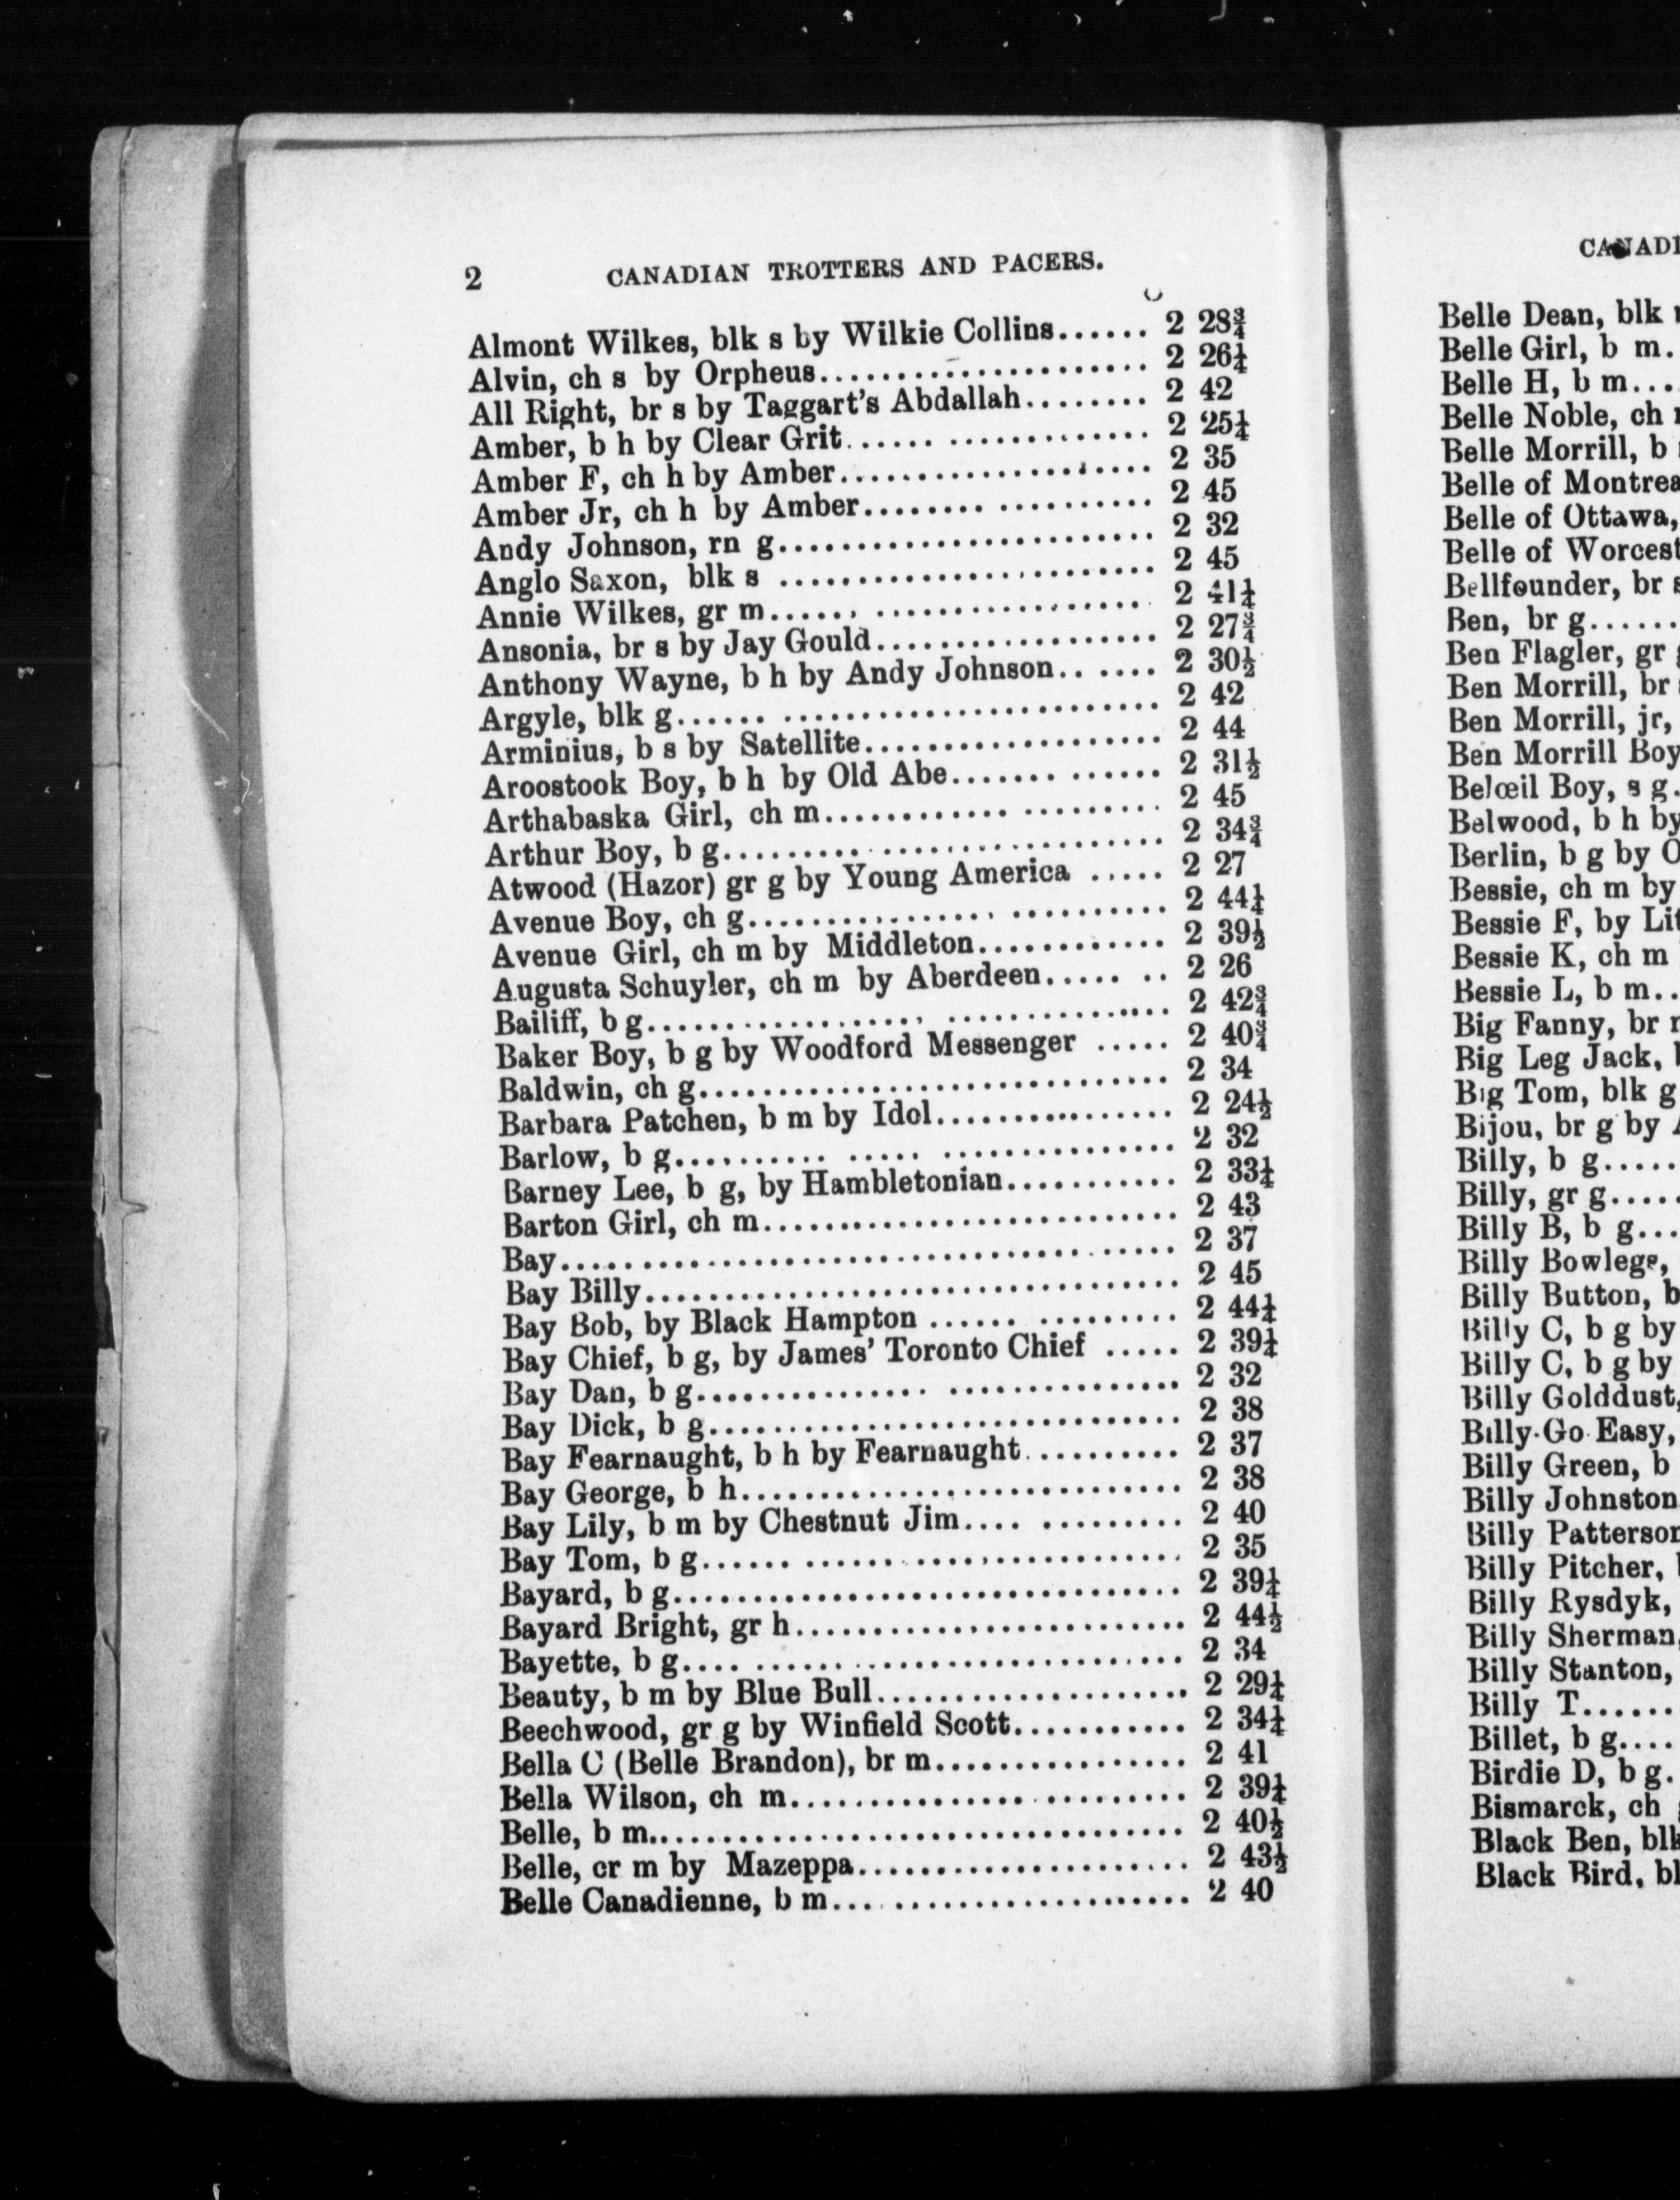 2 CANADIAN TROTTERS AND PACERS.
Almont Wilkes, blk s by Wilkie Collins...... 2 28¾
Alvin, ch s by Orpheus...................... 2 26¼
All Right, br s by Taggart's Abdallah........ 2 42
Amber, b h by Clear Grit...... ............. 2 25¼
Amber F, ch h by Amber.................... 2 35
Amber Jr, ch h by Amber........ .......... 2 45
Andy Johnson, rn g........................ 2 32
Anglo Saxon, blk s ........................ 2 45
Annie Wilkes, gr m...... .................. 2 41¼
Ansonia, br s by Jay Gould.................. 2 27¾
Anthony Wayne, b h by Andy Johnson.. .... 2 30½
Argyle, blk g...... ........................ 2 42
Arminius, b s by Satellite................... 2 44
Aroostook Boy, b h by Old Abe....... ...... 2 31½
Arthabaska Girl, ch m............ ......... 2 45
Arthur Boy, b g......... .................. 2 34¾
Atwood (Hazor) gr g by Young America ..... 2 27
Avenue Boy, ch g................ .......... 2 44¼
Avenue Girl, ch m by Middleton............ 2 39½
Augusta Schuyler, ch m by Aberdeen..... .. 2 26
Bailiff, b g.................. .............. 2 42¾
Baker Boy, b g by Woodford Messenger ..... 2 40¾
Baldwin, ch g.............................. 2 34
Barbara Patchen, b m by Idol............... 2 24½
Barlow, b g.......... ..... ............... 2 32
Barney Lee, b g, by Hambletonian........... 2 33¼
Barton Girl, ch m.......................... 2 43
Bay....................................... 2 37
Bay Billy.................................. 2 45
Bay Bob, by Black Hampton ...... ......... 2 44¼
Bay Chief, b g, by James' Toronto Chief ..... 2 39¼
Bay Dan, b g............... ............... 2 32
Bay Dick, b g.............................. 2 38
Bay Fearnaught, b h by Fearnaught.......... 2 37
Bay George, b h............................ 2 38
Bay Lily, b m by Chestnut Jim.... ......... 2 40
Bay Tom, b g...... ........................ 2 35
Bayard, b g................................ 2 39¼
Bayard Bright, gr h......................... 2 44½
Bayette, b g.... ........................... 2 34
Beauty, b m by Blue Bull.................... 2 29¼
Beechwood, gr g by Winfield Scott........... 2 34¼
Bella C (Belle Brandon), br m................ 2 41
Bella Wilson, ch m......................... 2 39¼
Belle, b m.................................. 2 40½
Belle, cr m by Mazeppa..................... 2 43½
Belle Canadienne, b m...................... 2 40
CANADI
Belle Dean, blk
Belle Girl, b m.
Belle H, b m...
Belle Noble, ch
Belle Morrill, b
Belle of Montrea
Belle of Ottawa,
Belle of Worcest
Bellfounder, br s
Ben, br g......
Ben Flagler, gr
Ben Morrill, br
Ben Morrill, jr,
Ben Morrill Boy
Belœil Boy, s g.
Belwood, b h by
Berlin, b g by O
Bessie, ch m by
Bessie F, by Lit
Bessie K, ch m
Bessie L, b m..
Big Fanny, br
Big Leg Jack,
Big Tom, blk g
Bijou, br g by
Billy, b g.....
Billy, gr g....
Billy B, b g...
Billy Bowlegs,
Billy Button, b
Billy C, b g by
Billy C, b g by
Billy Golddust,
Billy Go Easy,
Billy Green, b
Billy Johnston
Billy Patterson
Billy Pitcher,
Billy Rysdyk,
Billy Sherman,
Billy Stanton,
Billy T......
Billet, b g....
Birdie D, b g.
Bismarck, ch
Black Ben, blk
Black Bird, bl